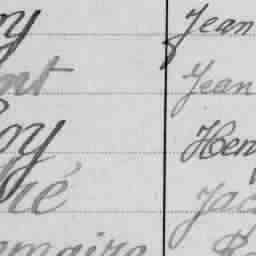 y Jean
nt Jean
oy Hen
ré Jac
emaire